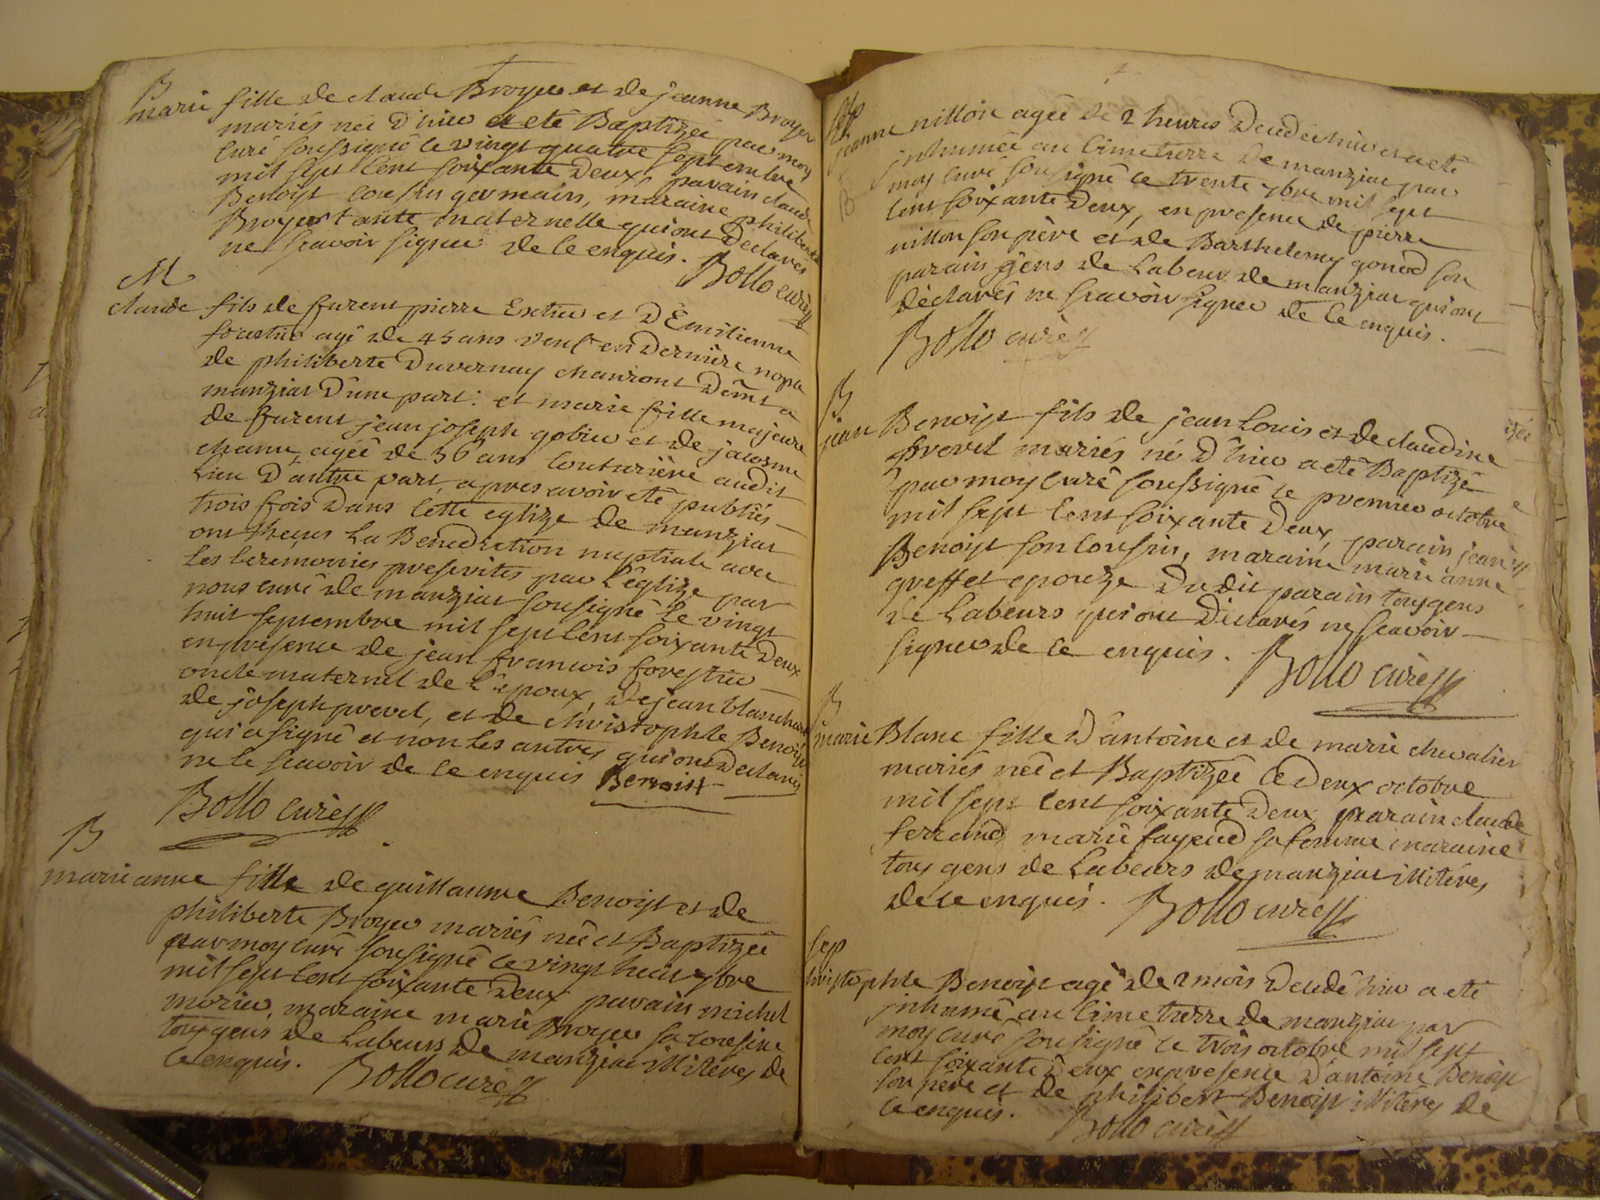 B
marie fille de claude Broyer et de jeanne Broyer
mariés née d'hier a eté Baptizée par moy
curé soussigné le vingt quatre septembre
mil sept cent soixante deux, parain claude
Benoist cousin germain, maraine philiberte
Broyer tante maternelle qui ont declarés
ne scavoir signer de ce enquis. Bollo curé
M
claude fils de furent pierre et d'Emilienne
agé de 45 ans veuf en derniere nopce
de philiberte Duvernay demt a
manziat d'une part: et marie fille majeure
de furent jean joseph gobier et de jacqme
agée de 36 ans couturière audit
lieu d'autre part, apres avoir eté publiés
trois fois dans cette eglize de manziat
ont reçus la Benediction nuptiale avec
les ceremonies prescrites par l'églize par
nous curé de manziat sousigné le vingt
huit septembre mil sept cent soixante deux
en presence de jean francois forestier
oncle maternel de l'époux, de jean blanchard
de joseph prevel, et de christophle Benoist
qui a signé et non les autres qui ont declarés
ne le scavoir de ce enquis Benoist
Bollo curé
B
marie anne fille de guillaume Benoist et de
philiberte Broyer mariés née et Baptizée
par moy curé sousigné le vingt huit 7bre
mil sept cent soixante deux parain michel
morier, maraine marie Broyer sa cousine
tous gens de Labeurs de manziat illiterés de
ce enquis. Bollo curé
Sep
jeanne nitton agée de 2 heures decedée hier a eté
inhumée au cimetierre de manziat par
moy curé sousigné le trente 7bre mil sept
B
cent soixante deux, en presence de pierre
nitton son père et de Barthelemy gonod son
parain gens de Labeur de manziat qui ont
declarés ne scavoir signer de ce enquis.
Bollo curé
B
jean Benoist fils de jean Louis et de claudine
prevel mariés né d'hier a eté Baptizé
par moy curé soussigné le premier octobre
mil sept cent soixante deux, parain jean
Benoist son cousin, maraine marie anne
greffet epouze du dit parain tous gens
de Labeurs qui ont declarés ne scavoir
signer de ce enquis. Bollo curé
B
marie Blanc fille d'antoine et de marie chevalier
mariés née et Baptizée le deux octobre
mil sept cent soixante deux parain claude
ferrand marie fayeud sa femme maraine
tous gens de Labeurs de manziat illiterés
de ce enquis. Bollo curé
Sep
christophle Benoist agé de 2 mois decedé hier a eté
inhumé au cimetierre de manziat par
moy curé sousigné le trois octobre mil sept
cent soixante deux en presence d'antoine Benoist
son pere et de philibert Benoist illiterés de
ce enquis. Bollo curé